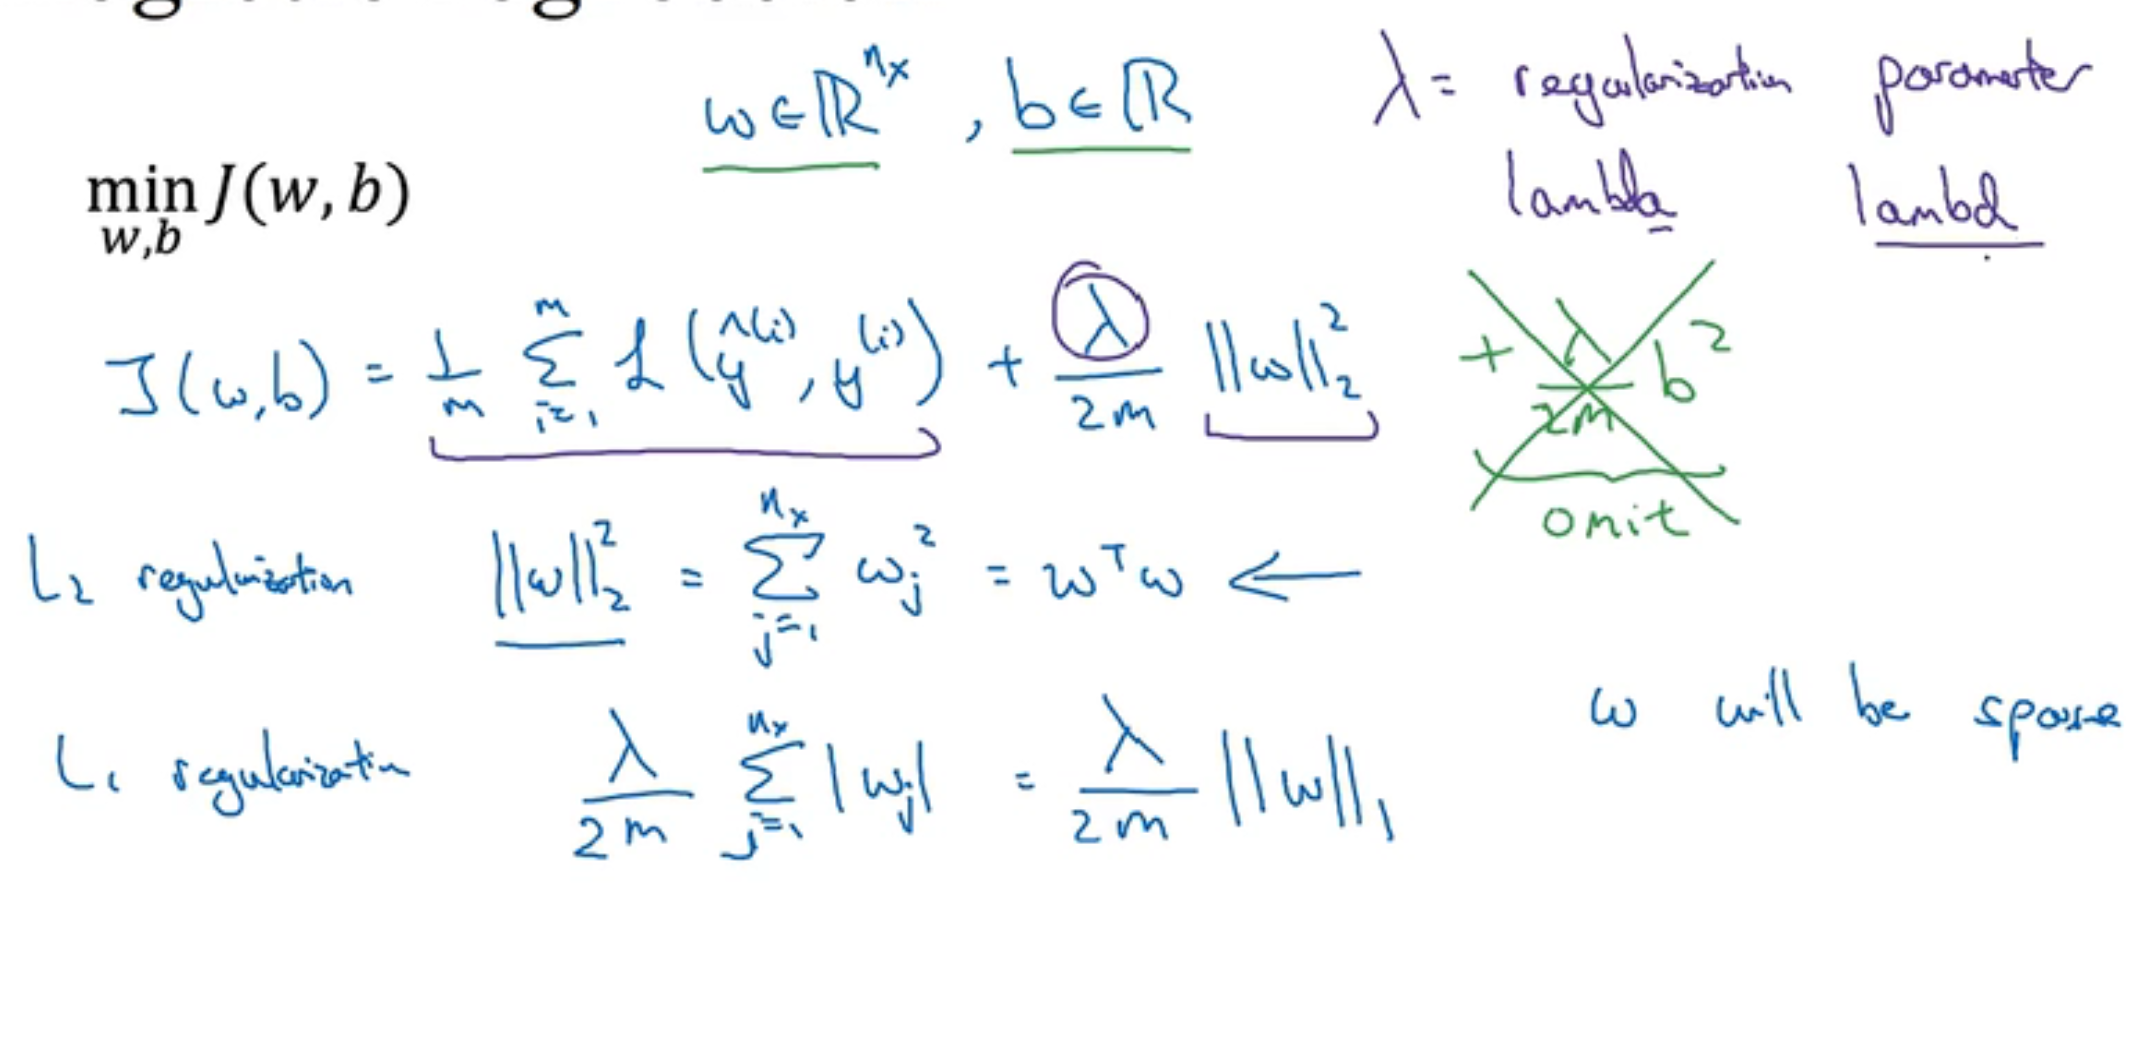 w ∈ ℝ^{n_x}, b ∈ ℝ
λ = regularization parameter
lambda lambd
min_{w,b} J(w, b)
J(w,b) = 1/m Σ_{i=1}^{m} ℒ(ŷ^{(i)}, y^{(i)}) + λ/2m ||w||_2^2 + λ/2m b^2
omit
L_2 regularization ||w||_2^2 = Σ_{j=1}^{n_x} w_j^2 = w^T w ←
w will be sparse
L_1 regularization λ/2m Σ_{j=1}^{n_x} |w_j| = λ/2m ||w||_1